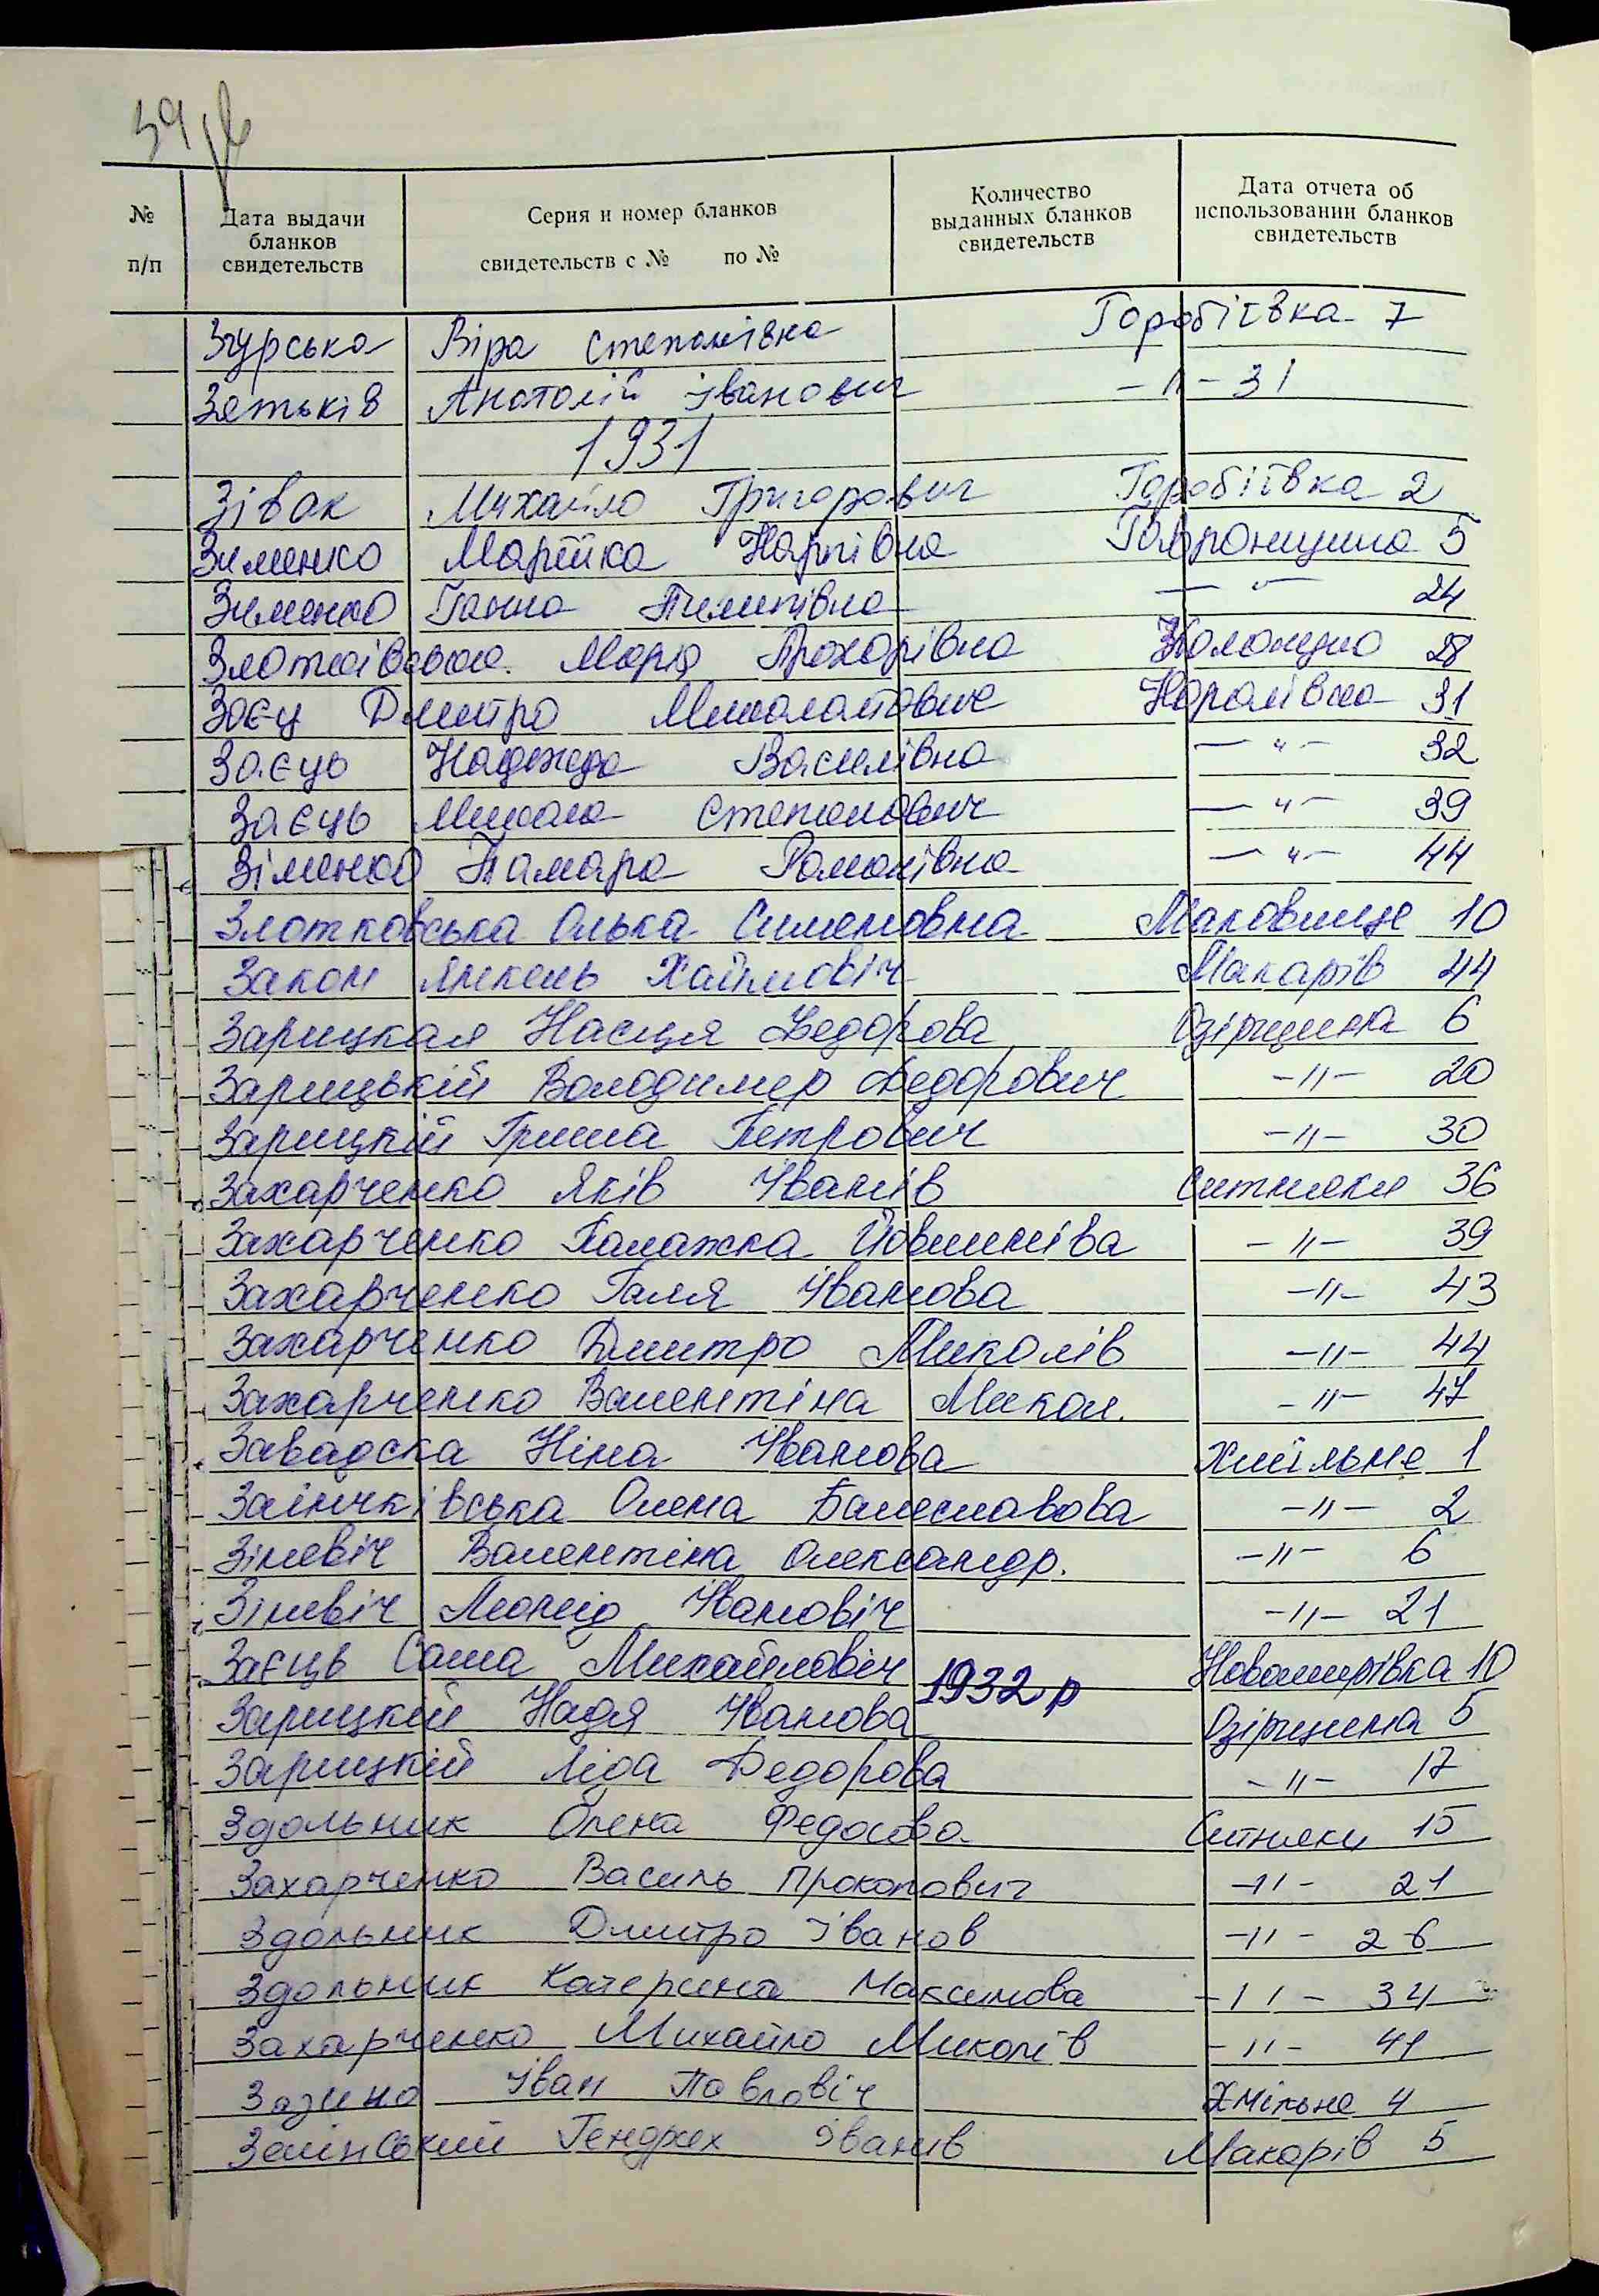 39
№ п/п
Дата выдачи бланков свидетельств
Серия и номер бланков свидетельств с № по №
Количество выданных бланков свидетельств
Дата отчета об использовании бланков свидетельств
Згурська Віра Степанівна Горобіївка 7
Зятьків Анатолій Іванович -"- 31
1931
Зівак Михайло Григорович Горобіївка 2
Зименко Марійка Карпівна Гавронщина 5
Зименко Ганна Пилипівна -"- 24
Марія Прохорівна Колонщина 28
Заєц Дмитро Миколайович Королівка 31
Заєць Надежда Василівна -"- 32
Заєць Микола Степанович -"- 39
Зіменко Тамара Романівна -"- 44
Злотковська Олька Сименовна Маковище 10
Закон Янкель Хаймовіч Макарів 44
Зарицкая Насця Федорова Озірщина 6
Зарицький Володимер Федорович -"- 20
Зарицкій Гриша Петрович -"- 30
Захарченко Яків Іванів Ситняки 36
Захарченко Палажка Йовхимківа -"- 39
Захарченко Галя Іванова -"- 43
Захарченко Дмитро Миколів -"- 44
Захарченко Валентіна Микол. -"- 47
Завадска Ніна Іванова Хмільне 1
Заінчківська Олена Балеславова -"- 2
Зіневіч Валентіна Олександр. -"- 6
Зіневіч Леонід Івановіч -"- 21
Заєць Саша Михайловіч Новомирівка 10
1932 р
Зарицкій Надя Іванова Озірщина 5
Зарицкій Ліда Федорова -"- 17
Здольник Олена Федосова Ситняки 15
Захарченко Василь Прокопович -"- 21
Здольник Дмитро Іванов -"- 26
Здольник Катерина Максимова -"- 34
Захарченко Михайло Миколів -"- 41
Іван Павловіч Хмільна 4
Генджех Іванів Макарів 5